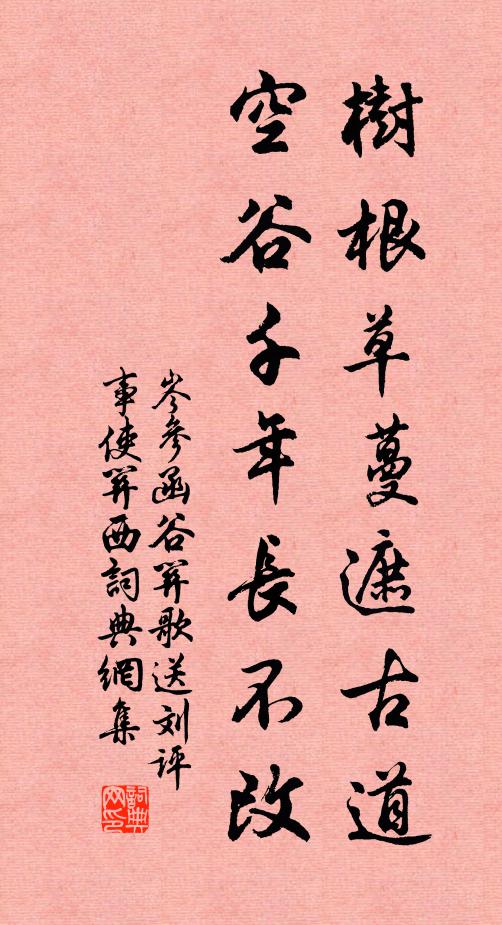 樹根草蔓遮古道
空谷千年長不改
岑參函谷關歌送刘评
事使關西詞典網集
詞典網印